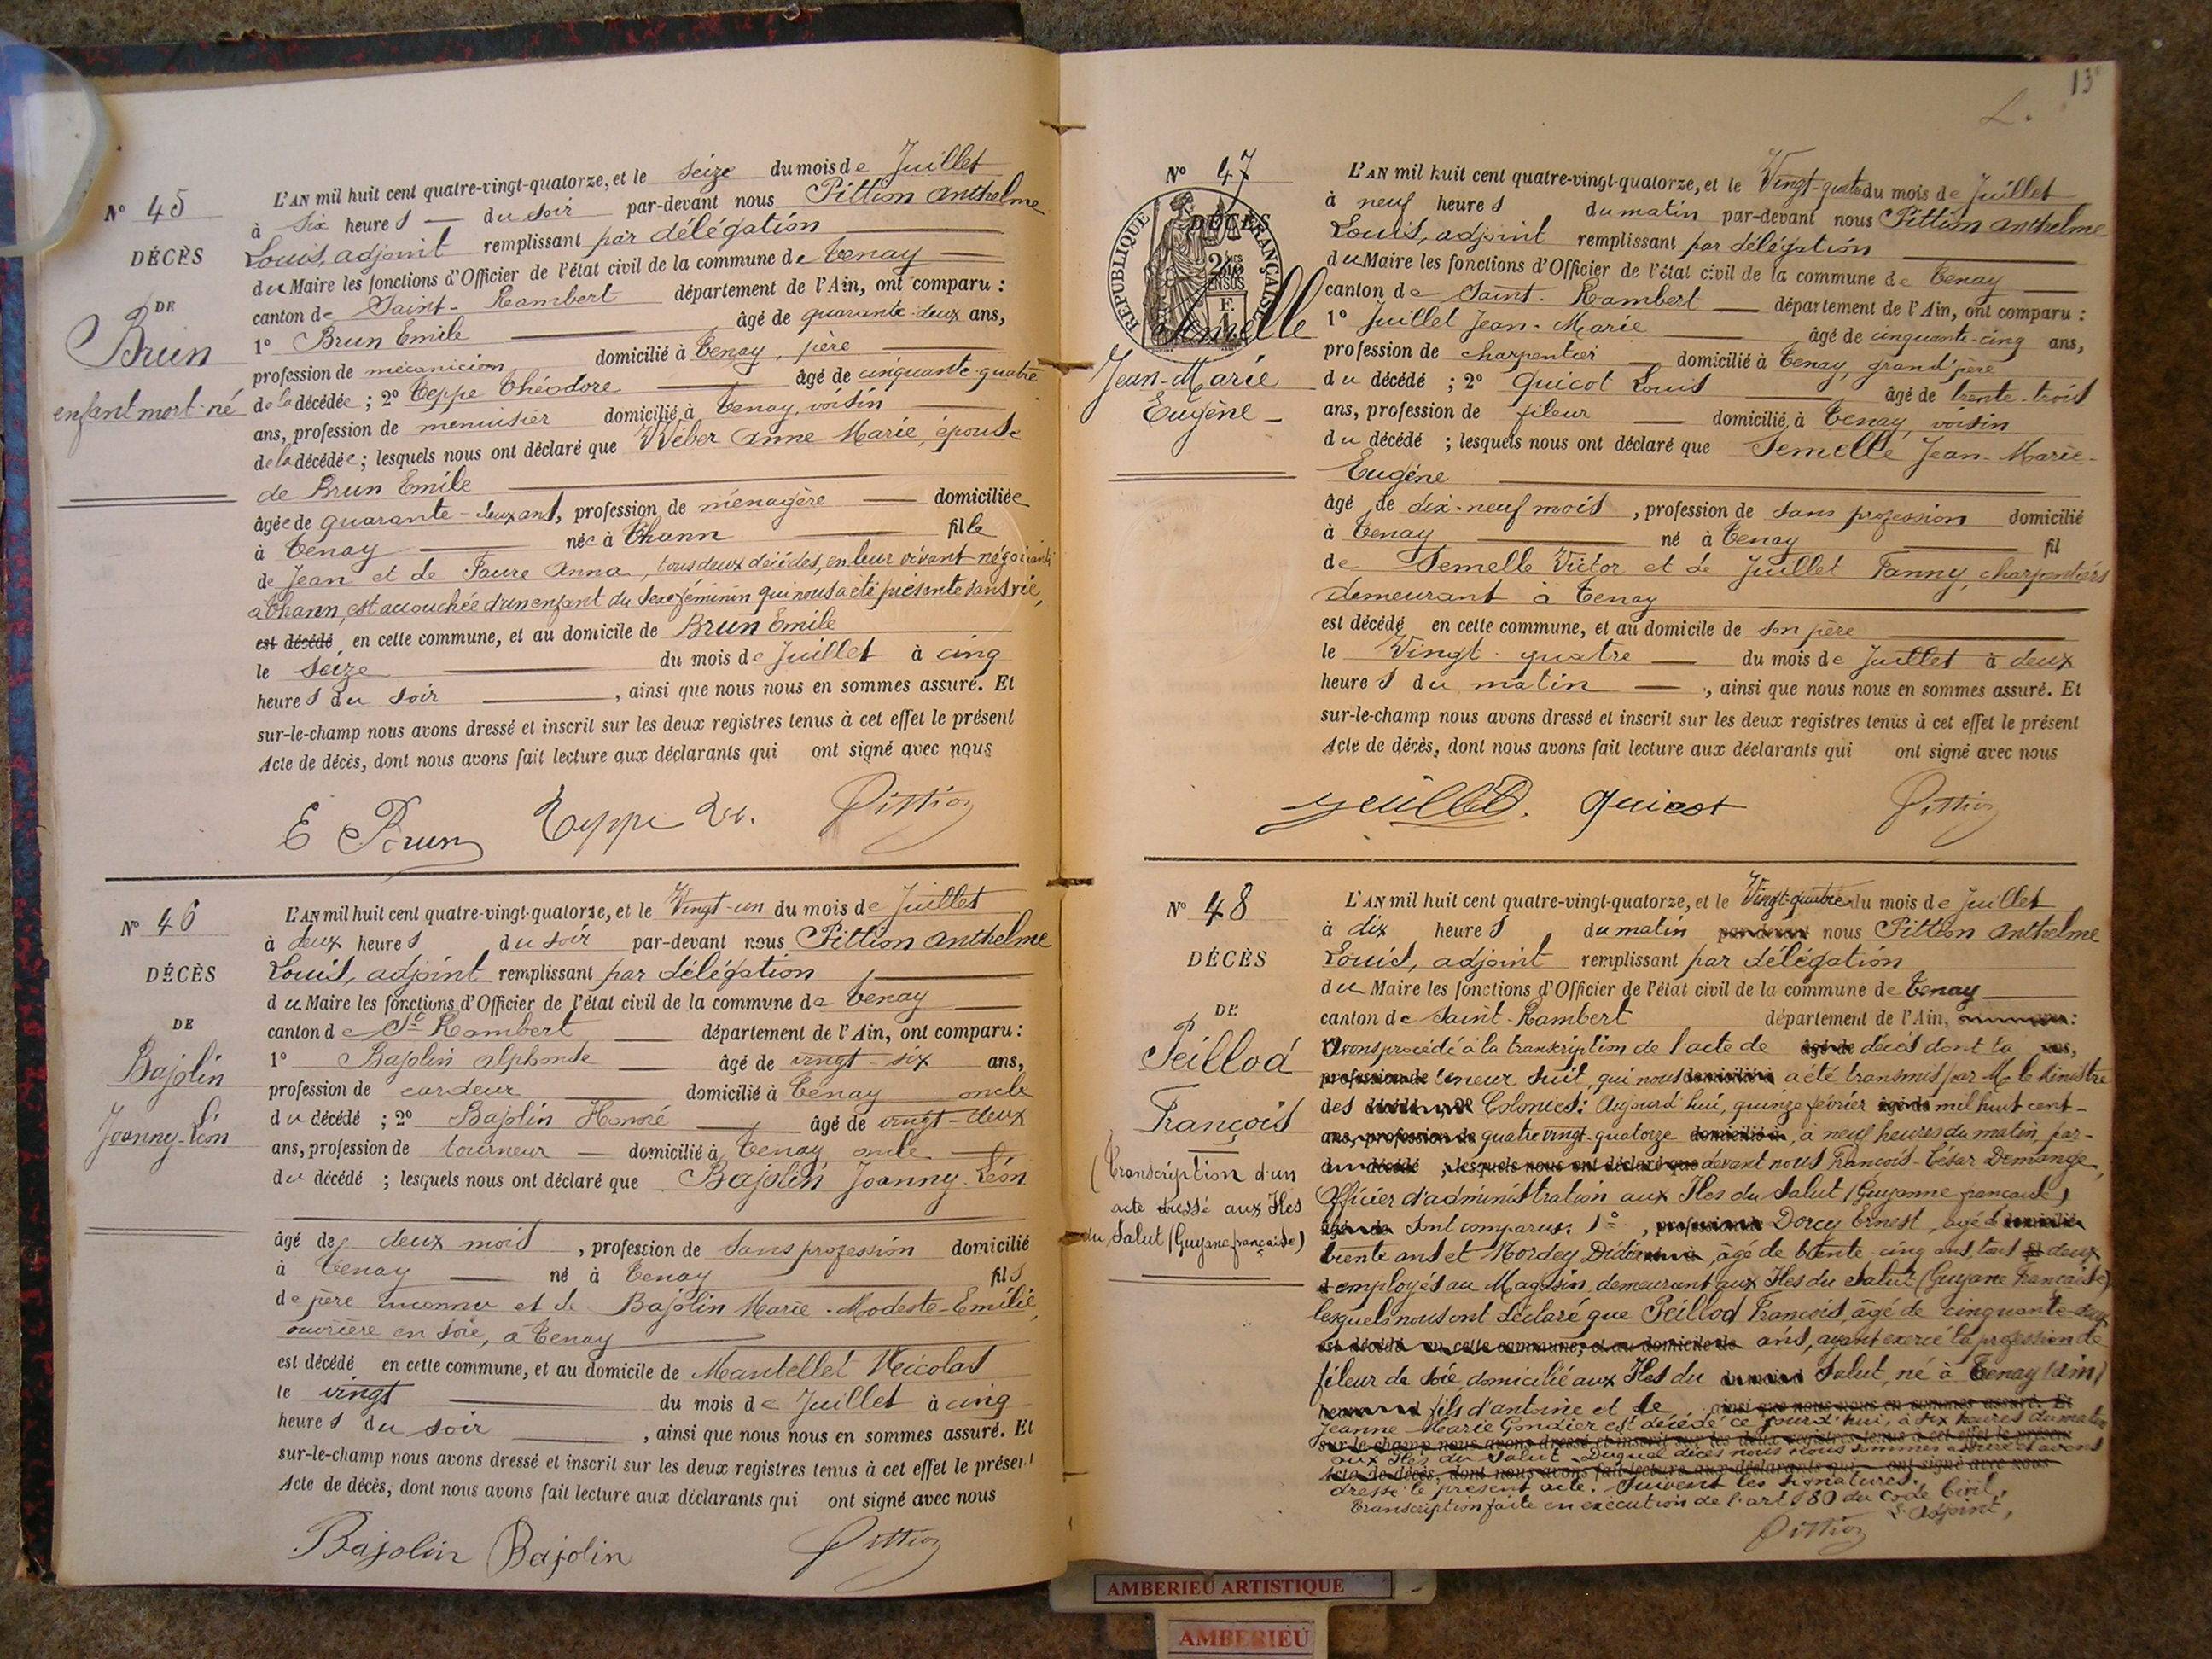 N° 45
DÉCÈS
DE
Brun
enfant mort-né
L'AN mil huit cent quatre-vingt-quatorze, et le seize du mois de Juillet
à six heures du soir par-devant nous Pittion Anthelme
Louis, adjoint remplissant par délégation
du Maire les fonctions d'Officier de l'état civil de la commune de Tenay
canton de Saint-Rambert département de l'Ain, ont comparu :
1° Brun Emile âgé de quarante-deux ans,
profession de mécanicien domicilié à Tenay, père
de la décédée ; 2° Teppe Théodore âgé de cinquante-quatre
ans, profession de menuisier domicilié à Tenay, voisin
de la décédée ; lesquels nous ont déclaré que Wéber Anne Marie, épouse
de Brun Emile
âgée de quarante-deux ans, profession de ménagère domiciliée
à Tenay née à Thann fille
de Jean et de Faure Anna, tous deux décédés, en leur vivant négociants
à Thann, est accouchée d'un enfant du sexe féminin qui nous a été présenté sans vie,
est décédé en cette commune, et au domicile de Brun Emile
le seize du mois de Juillet à cinq
heures du soir , ainsi que nous nous en sommes assuré. Et
sur-le-champ nous avons dressé et inscrit sur les deux registres tenus à cet effet le présent
Acte de décès, dont nous avons fait lecture aux déclarants qui ont signé avec nous
E Brun Teppe Pittion
N° 46
DÉCÈS
DE
Bajolin
Joanny-Léon
L'AN mil huit cent quatre-vingt-quatorze, et le Vingt-un du mois de Juillet
à deux heures du soir par-devant nous Pittion Anthelme
Louis, adjoint remplissant par délégation
du Maire les fonctions d'Officier de l'état civil de la commune de Tenay
canton de St Rambert département de l'Ain, ont comparu :
1° Bajolin Alphonse âgé de vingt-six ans,
profession de cardeur domicilié à Tenay oncle
du décédé ; 2° Bajolin Honoré âgé de vingt-deux
ans, profession de tourneur domicilié à Tenay oncle
du décédé ; lesquels nous ont déclaré que Bajolin Joanny-Léon
âgé de deux mois , profession de sans profession domicilié
à Tenay né à Tenay fils
de père inconnu et de Bajolin Marie-Modeste-Emilie,
ouvrière en soie, à Tenay
est décédé en cette commune, et au domicile de Mantellet Nicolas
le vingt du mois de Juillet à cinq
heures du soir , ainsi que nous nous en sommes assuré. Et
sur-le-champ nous avons dressé et inscrit sur les deux registres tenus à cet effet le présent
Acte de décès, dont nous avons fait lecture aux déclarants qui ont signé avec nous
Bajolin Bajolin Pittion
13
N° 47
DÉCÈS
RÉPUBLIQUE FRANÇAISE
Semelle
Jean-Marie
Eugène
L'AN mil huit cent quatre-vingt-quatorze, et le Vingt-quatre du mois de Juillet
à neuf heures du matin par-devant nous Pittion Anthelme
Louis, adjoint remplissant par délégation
du Maire les fonctions d'Officier de l'état civil de la commune de Tenay
canton de Saint-Rambert département de l'Ain, ont comparu :
1° Juillet Jean-Marie âgé de cinquante-cinq ans,
profession de charpentier domicilié à Tenay, grand'père
du décédé ; 2° Guicot Louis âgé de trente-trois
ans, profession de fileur domicilié à Tenay, voisin
du décédé ; lesquels nous ont déclaré que Semelle Jean-Marie-
Eugène
âgé de dix-neuf mois , profession de sans profession domicilié
à Tenay né à Tenay fil
de Semelle Victor et de Juillet Fanny, charpentiers
demeurant à Tenay
est décédé en cette commune, et au domicile de son père
le Vingt-quatre du mois de Juillet à deux
heures du matin , ainsi que nous nous en sommes assuré. Et
sur-le-champ nous avons dressé et inscrit sur les deux registres tenus à cet effet le présent
Acte de décès, dont nous avons fait lecture aux déclarants qui ont signé avec nous
Juillet. Guicot Pittion
N° 48
DÉCÈS
DE
Peillod
François
(Transcription d'un
acte dressé aux Iles
du Salut (Guyane française)
L'AN mil huit cent quatre-vingt-quatorze, et le Vingt-quatre du mois de Juillet
à dix heures du matin par-devant nous Pittion Anthelme
Louis, adjoint remplissant par délégation
du Maire les fonctions d'Officier de l'état civil de la commune de Tenay
canton de Saint-Rambert département de l'Ain,
Avons procédé à la transcription de l'acte de décès dont la
teneur suit, qui nous a été transmis par M. le Ministre
des Colonies: Aujourd'hui, quinze février mil huit cent-
quatre vingt-quatorze, à neuf heures du matin, par-
devant nous François-César Demange,
Officier d'administration aux Iles du Salut (Guyanne française)
sont comparus: 1° Dorcy Ernest, agé d
trente ans et Mordey Didier, âgé de trente cinq ans, tous deux
employés au Magasin, demeurant aux Iles du Salut (Guyane Française)
lesquels nous ont déclaré que Peillod François, âgé de cinquante-deux
ans, ayant exercé la profession de
fileur de soie, domicilié aux Iles du Salut, né à Tenay (Ain)
fils d'antoine et de
Jeanne Marie Gondier est décédé ce jourd'hui, à six heures du matin
aux Iles du Salut. Duquel décès nous nous sommes assuré et avons
dressé le présent acte. Suivent les signatures.
Transcription faite en exécution de l'art 80 du Code Civil,
L'adjoint,
Pittion
AMBERIEU ARTISTIQUE
AMBERIEU